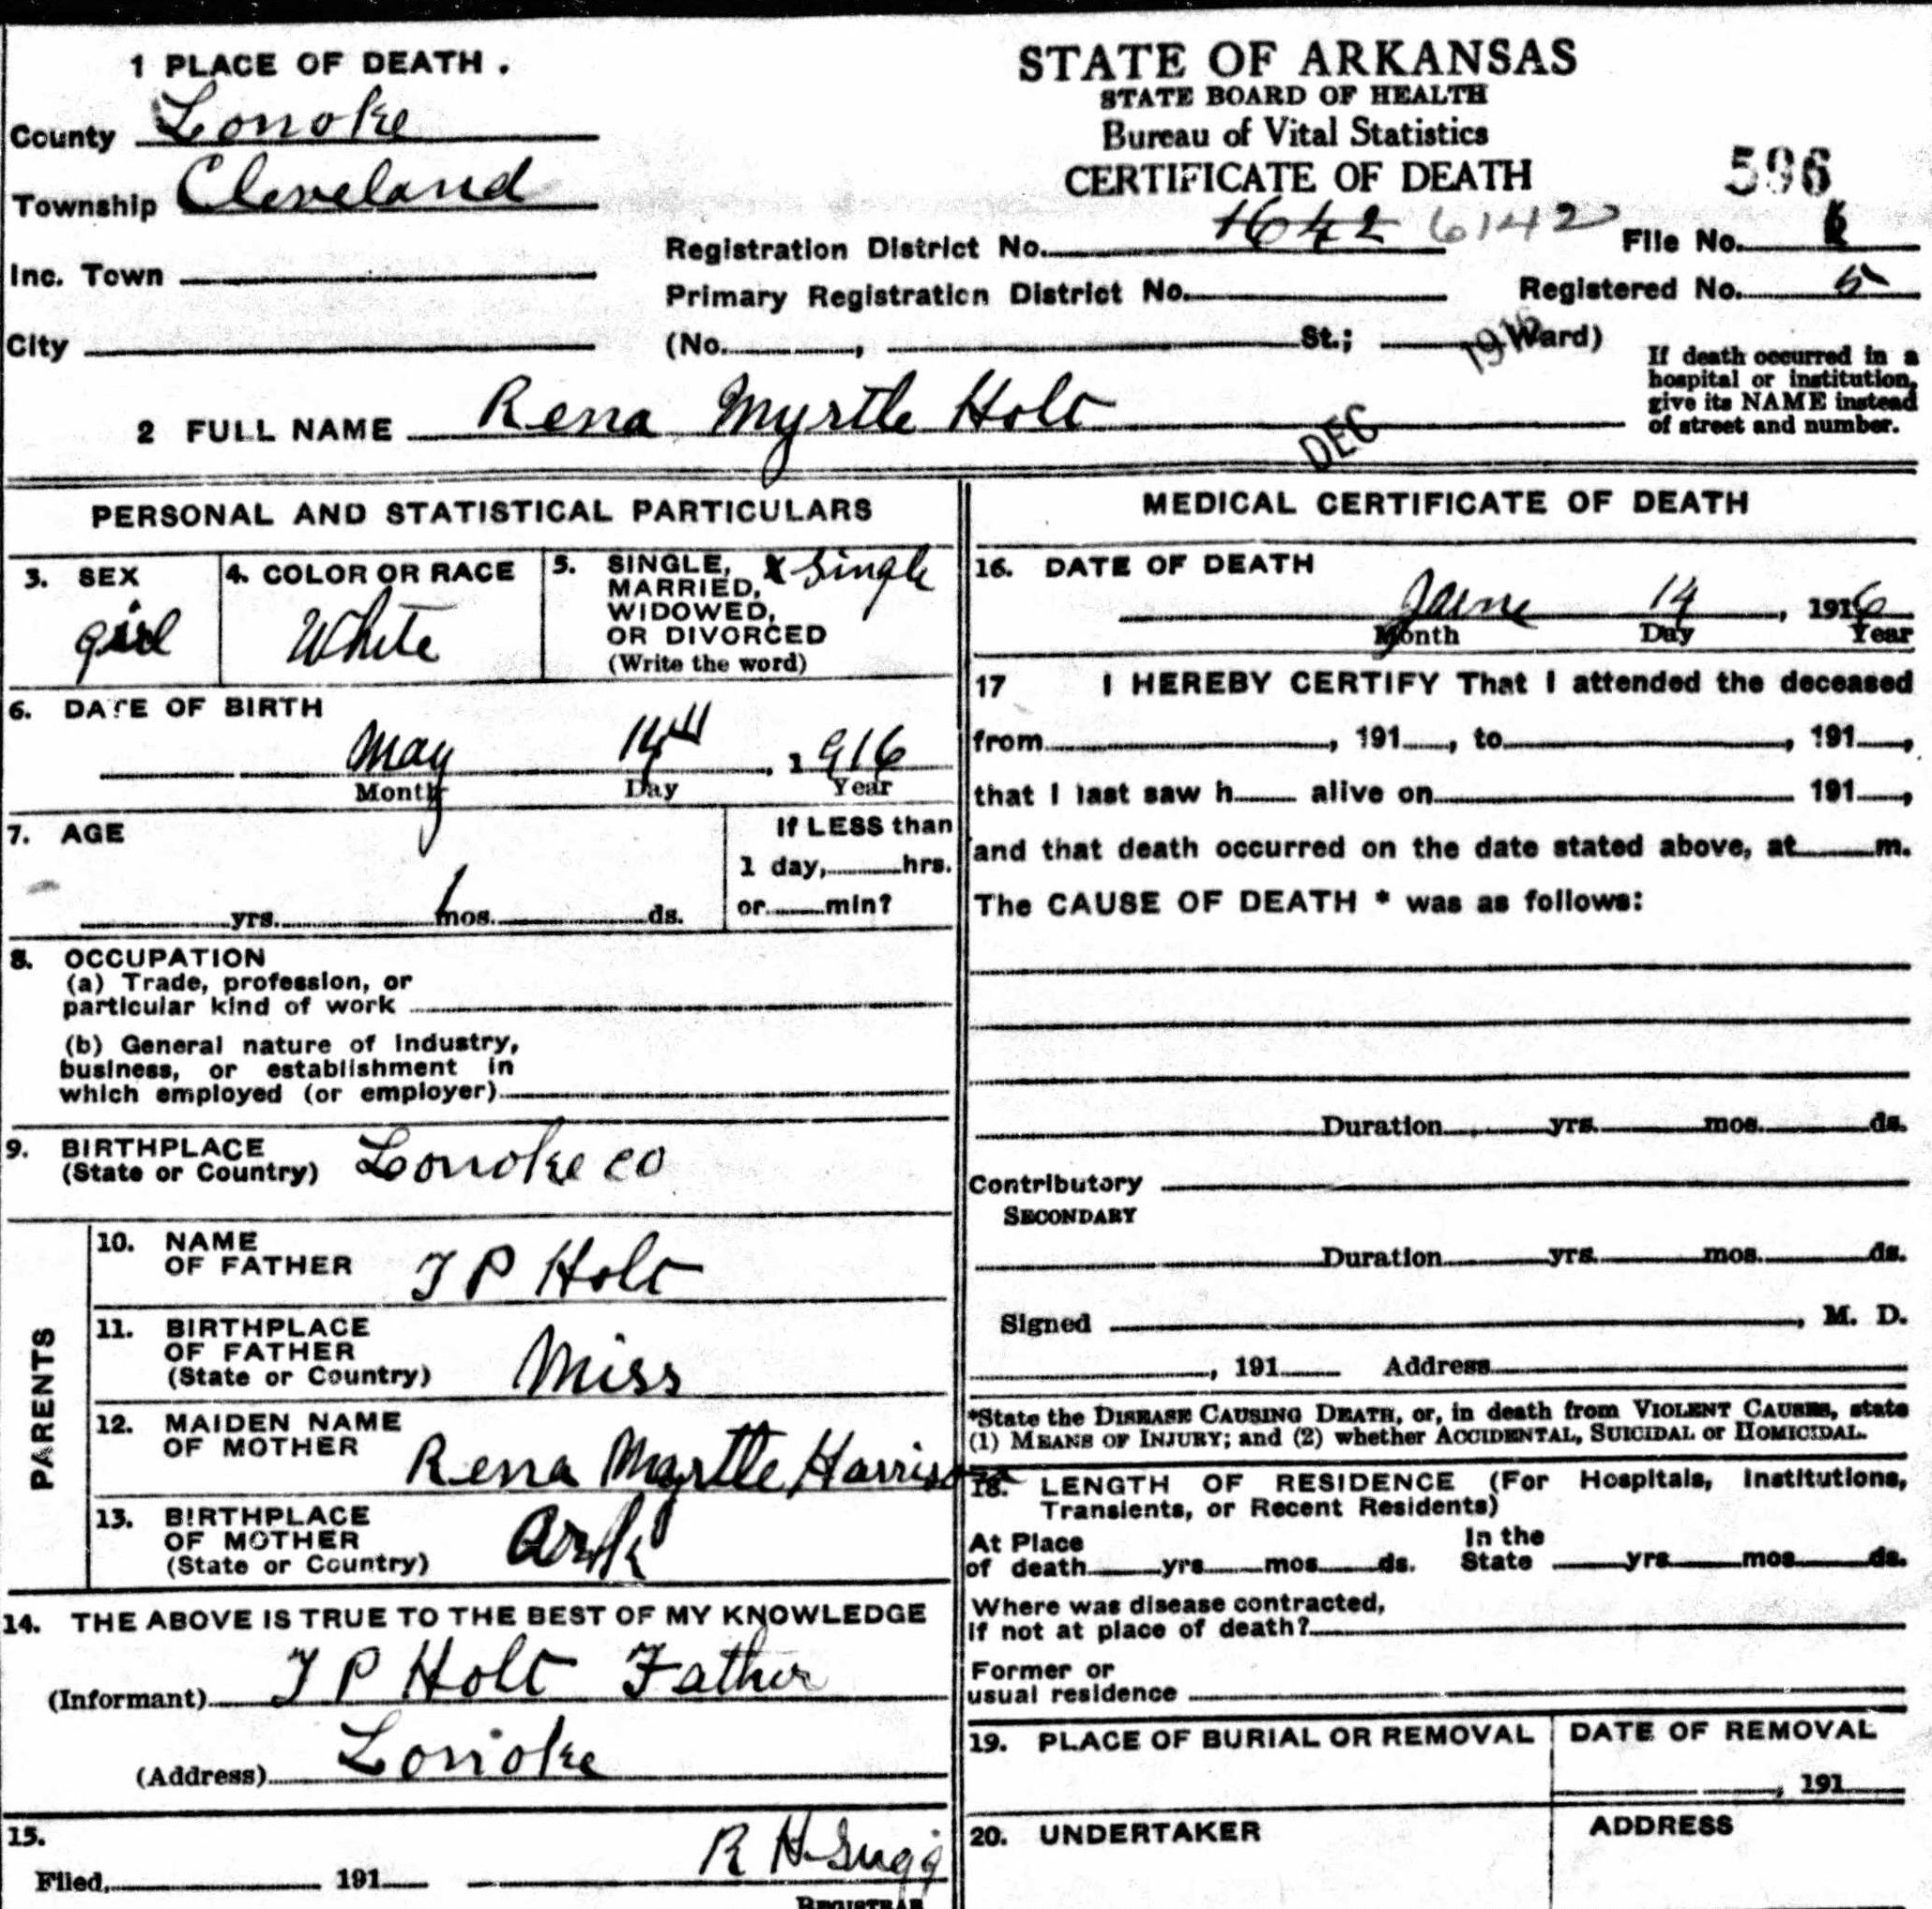 1 PLACE OF DEATH.
County Lonoke
Township Cleveland
Inc. Town
City
STATE OF ARKANSAS
STATE BOARD OF HEALTH
Bureau of Vital Statistics
CERTIFICATE OF DEATH
596
Registration District No. 1642 6142 File No.
Primary Registration District No. Registered No. 5
(No. , St.; Ward)
1916
If death occurred in a
hospital or institution,
give its NAME instead
of street and number.
2 FULL NAME Rena Myrtle Holt
DEC
PERSONAL AND STATISTICAL PARTICULARS
3. SEX
girl
4. COLOR OR RACE
White
5. SINGLE, x Single
MARRIED,
WIDOWED,
OR DIVORCED
(Write the word)
6. DATE OF BIRTH
May 14th, 1916
Month Day Year
7. AGE
yrs. 1 mos. ds.
If LESS than
1 day, hrs.
or min?
8. OCCUPATION
(a) Trade, profession, or
particular kind of work
(b) General nature of industry,
business, or establishment in
which employed (or employer)
9. BIRTHPLACE
(State or Country) Lonoke co
PARENTS
10. NAME
OF FATHER T P Holt
11. BIRTHPLACE
OF FATHER
(State or Country) Miss
12. MAIDEN NAME
OF MOTHER Rena Myrtle Harrison
13. BIRTHPLACE
OF MOTHER
(State or Country) Ark
14. THE ABOVE IS TRUE TO THE BEST OF MY KNOWLEDGE
(Informant) T P Holt Father
(Address) Lonoke
15.
Filed, 191 R H Sugg
REGISTRAR
MEDICAL CERTIFICATE OF DEATH
16. DATE OF DEATH
June 14, 1916
Month Day Year
17 I HEREBY CERTIFY That I attended the deceased
from , 191 , to , 191 ,
that I last saw h alive on 191 ,
and that death occurred on the date stated above, at m.
The CAUSE OF DEATH * was as follows:
Duration yrs. mos. ds.
Contributory
SECONDARY
Duration yrs. mos. ds.
Signed , M. D.
, 191 Address
*State the DISEASE CAUSING DEATH, or, in death from VIOLENT CAUSES, state
(1) MEANS OF INJURY; and (2) whether ACCIDENTAL, SUICIDAL or HOMICIDAL.
18. LENGTH OF RESIDENCE (For Hospitals, Institutions,
Transients, or Recent Residents)
At Place In the
of death yrs mos ds. State yrs mos ds.
Where was disease contracted,
if not at place of death?
Former or
usual residence
19. PLACE OF BURIAL OR REMOVAL
DATE OF REMOVAL
, 191
20. UNDERTAKER
ADDRESS